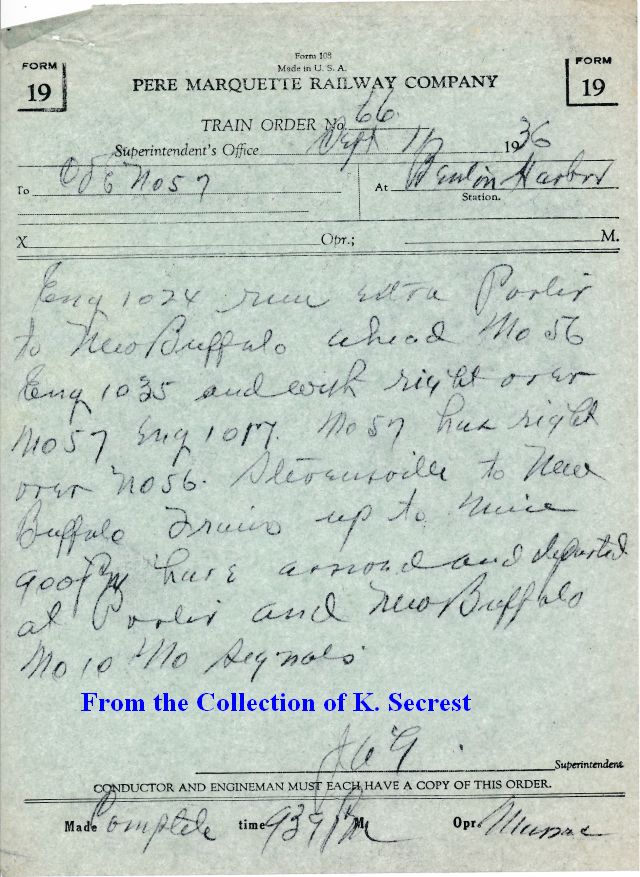 Form 108
Made in U. S. A.
FORM
19
PERE MARQUETTE RAILWAY COMPANY
FORM
19
TRAIN ORDER No. 66
Superintendent's Office Sept 1936
To C&E No 57
At Benton Harbor
Station.
X Opr.; M.
Eng 1024 run extra Porter
to New Buffalo ahead No 56
Eng 1035 and with right over
No 57 Eng 1017. No 57 has right
over No 56. Stevensville to New
Buffalo Trains up to nine
900 PM have arrived and departed
at Porter and New Buffalo
No 10 No Signals
From the Collection of K. Secrest
Superintendent
CONDUCTOR AND ENGINEMAN MUST EACH HAVE A COPY OF THIS ORDER.
Made Complete time 939 P M. Opr.